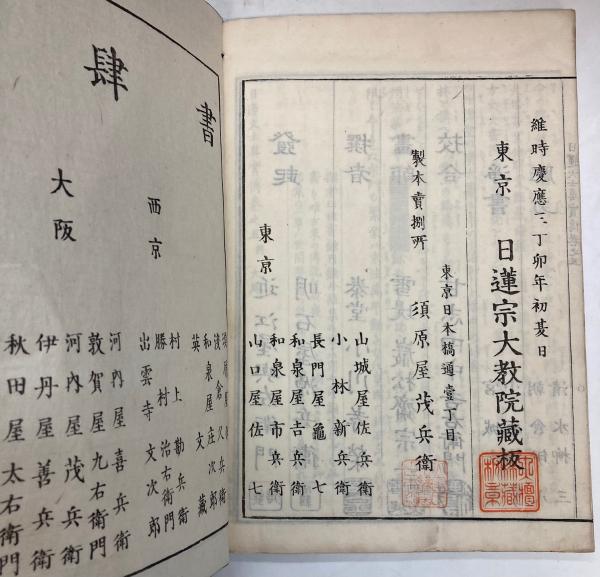 維時慶應三丁卯年初夏日
東京 日蓮宗大教院藏板
東京日本橋通壹丁目
製本賣捌所 須原屋茂兵衛
東京
山城屋佐兵衛
小林新兵衛
長門屋龜七
和泉屋吉兵衛
和泉屋市兵衛
山口屋佐七
書肆
和泉屋庄次郎
英文藏
西京
村上勘兵衛
勝村治右衛門
出雲寺文次郎
大阪
河內屋喜兵衛
敦賀屋九右衛門
河內屋茂兵衛
伊丹屋善兵衛
秋田屋太右衛門